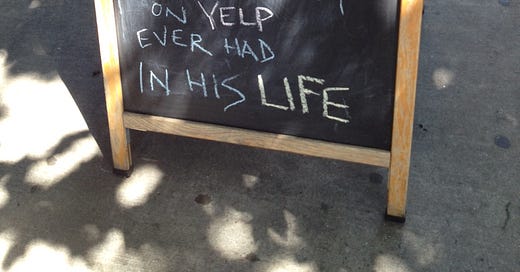 ON YELP
EVER HAD
IN HIS LIFE